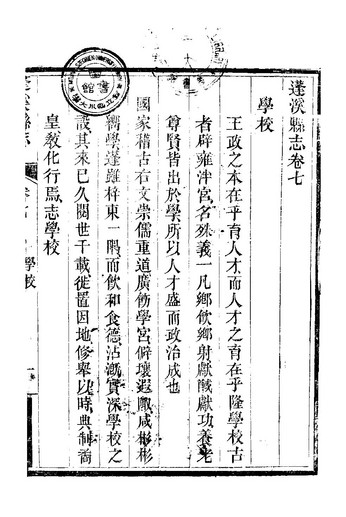 蓬溪縣志卷七
學校
王政之本在乎育人才而人才之育在乎隆學校古
者辟雍泮宮名殊義一凡鄉飲鄉射獻馘獻功養老
尊賢皆出於學所以人才盛而政治成也
國家稽古右文崇儒重道廣勵學宮僻壤遐陬咸彬彬
嚮學蓬雖梓東一隅而飲和食德沾漑實深學校之
設其來已久閱世千載徙置因地修舉以時典制喬
皇敎化行焉志學校
蓬溪縣志
卷七
學校
一